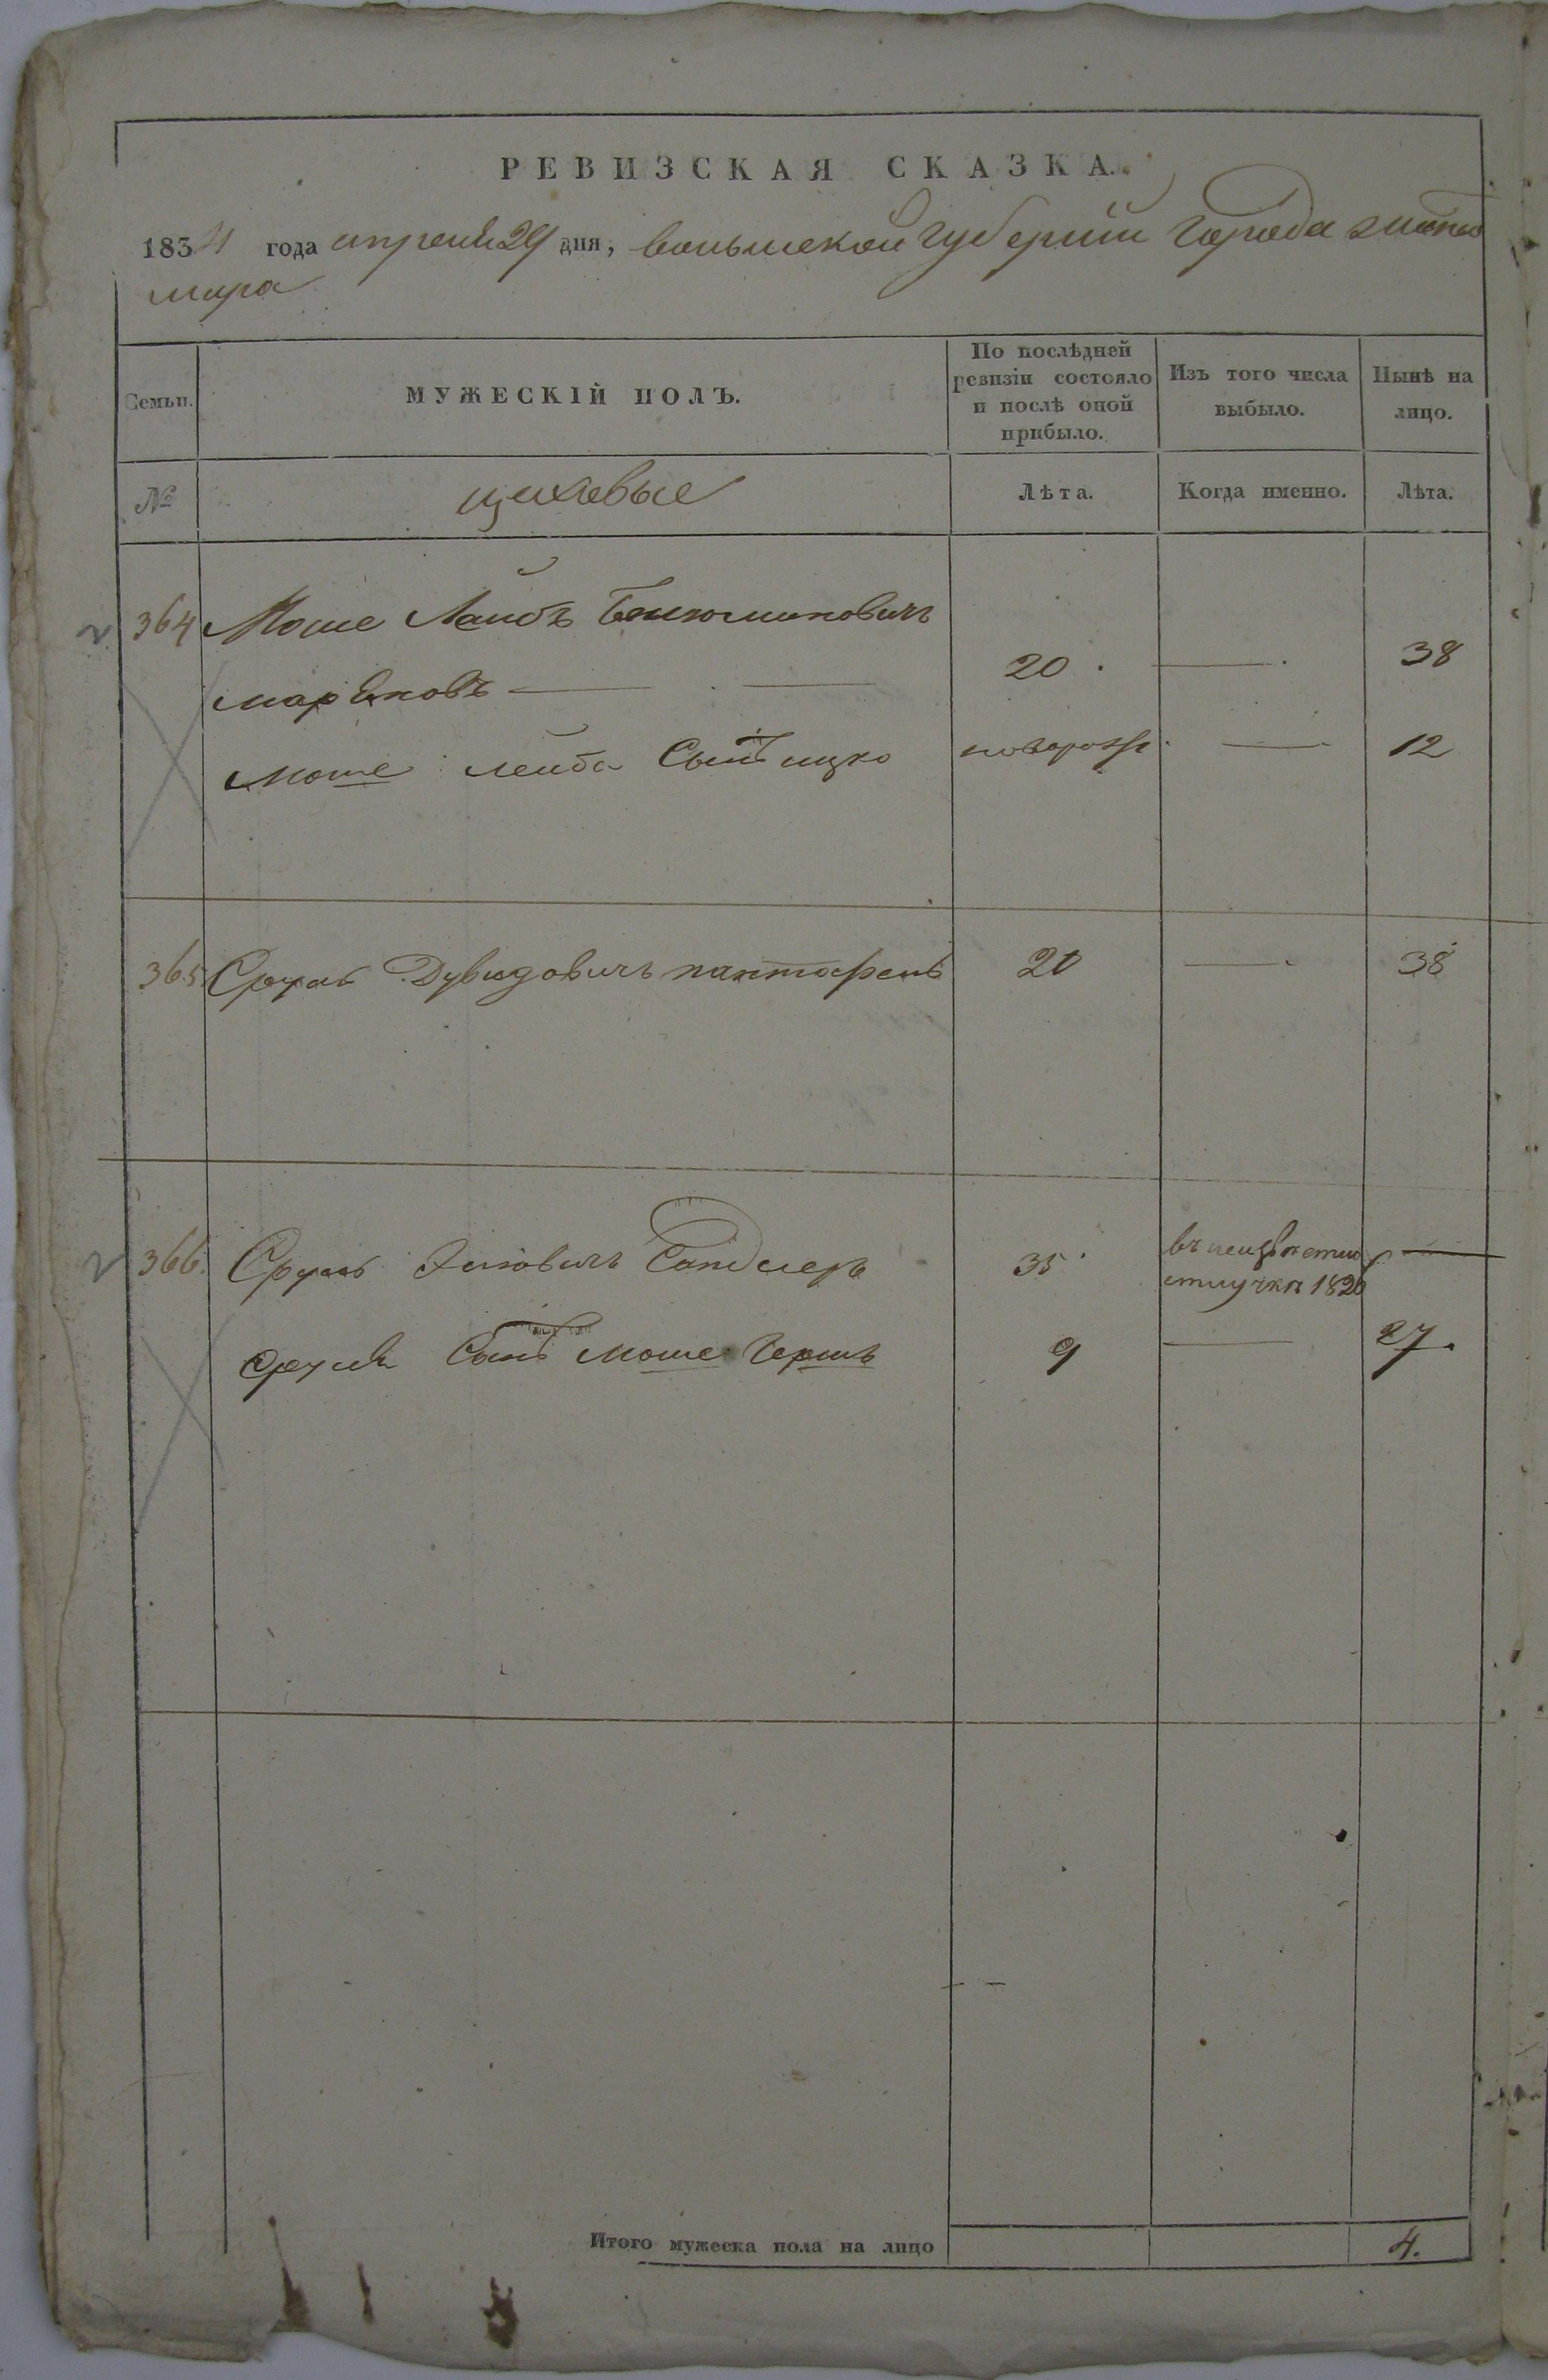 РЕВИЗСКАЯ СКАЗКА.
1834 года апреля 29 дня, волынской губернии города жито
мира
Семьи. МУЖЕСКІЙ ПОЛЪ. По послѣдней ревизіи состояло и послѣ оной прибыло. Изъ того числа выбыло. Нынѣ на лицо.
№ цеховые Лѣта. Когда именно. Лѣта.
364 Моше Леибъ Бениоминовичъ
20 38
моше леиба Сынъ ицко новорож 12
365 Сруль Дувидовичъ пантофель 20 38
366. Сруль Сандлеръ 35 въ неизвѣстно
отлучкѣ 1820
Сруля Сынъ Моше Гершъ 9 27.
Итого мужеска пола на лицо 4.